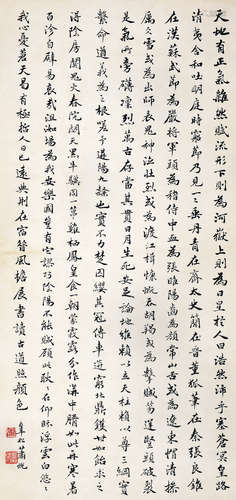 天地有正氣雜然賦流形下則為河嶽上則為日星於人曰浩然沛乎塞蒼冥皇路
清夷含和吐明庭時窮節乃見一一垂丹青在齊太史簡在晉董狐筆在秦張良椎
在漢蘇武節為嚴將軍頭為嵇侍中血為張睢陽齒為顏常山舌或為遼東帽清操
厲冰雪或為出師表鬼神泣壯烈或為渡江楫慷慨吞胡羯或為擊賊笏逆豎頭破裂
是氣所磅礴凜烈萬古存當其貫日月生死安足論地維賴以立天柱賴以尊三綱實
繫命道義為之根嗟予遘陽九隸也實不力楚囚纓其冠傳車送窮北鼎鑊甘如飴求之
得陰房闃鬼火春院閟天黑牛驥同一皁雞棲鳳凰食一朝蒙霧露分作溝中瘠如此再寒暑
百沴自辟易哀哉沮洳場為我安樂國豈有他繆巧陰陽不能賊顧此耿耿在仰視浮雲白
我心憂蒼天曷有極哲人日已遠典刑在夙昔風檐展書讀古道照顏色